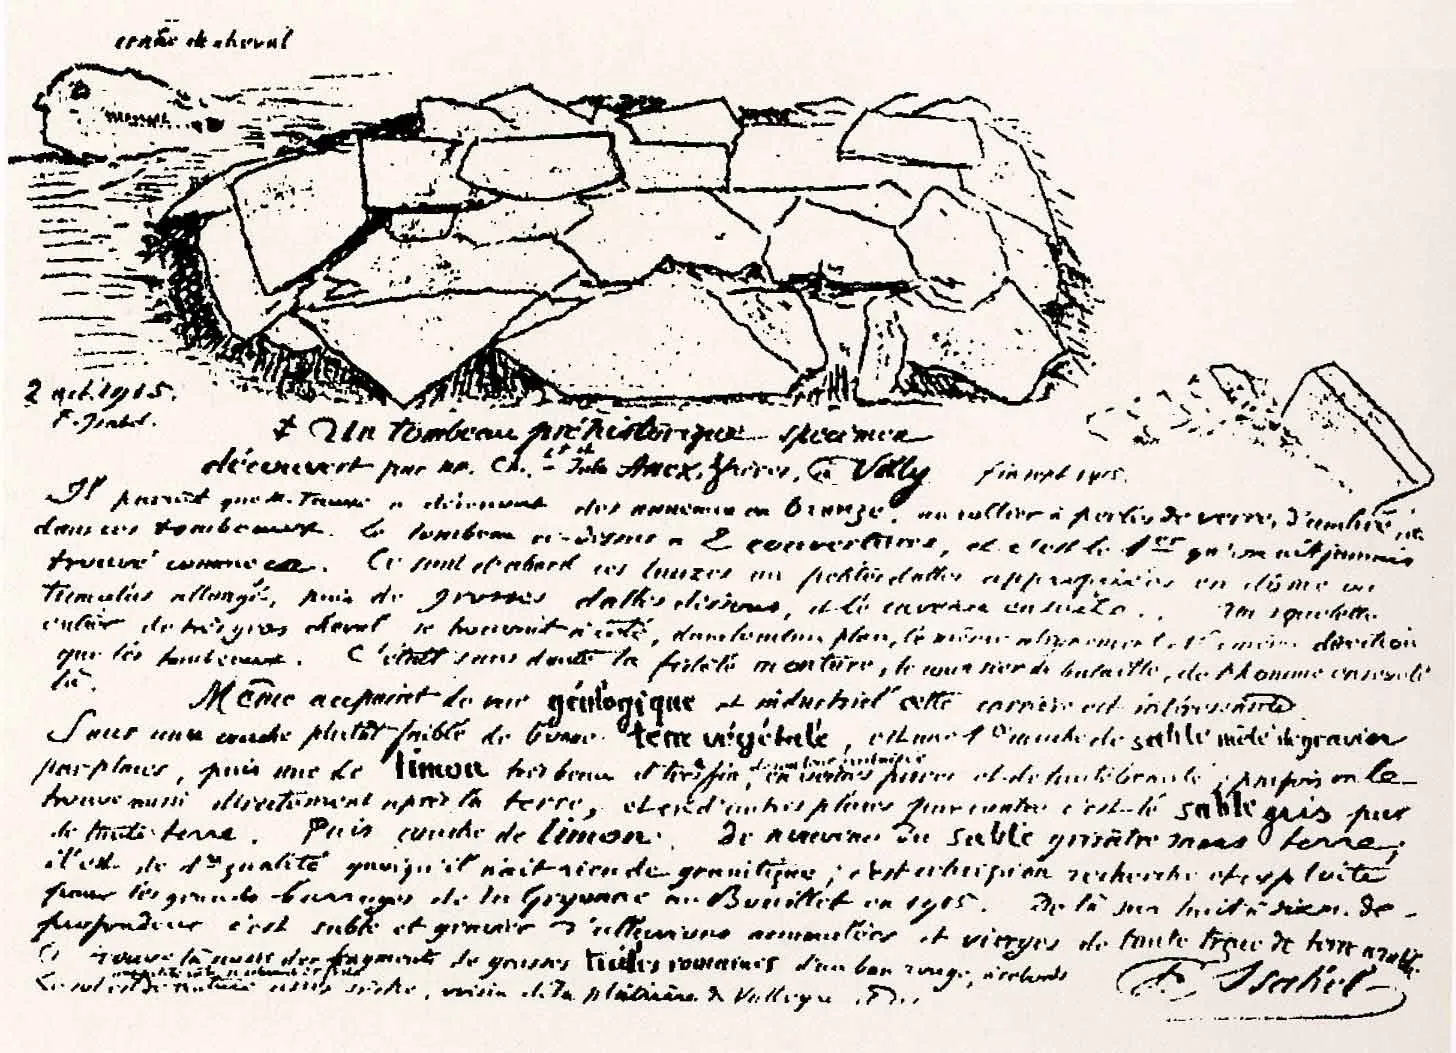 crâne de cheval
2 oct. 1915.
F. Isabel.
Un tombeau préhistorique specimen
découvert par MM. Ch. et Jules Anex, frères, à Volly fin sept 1915.
Il paraît que M. a découvert des anneaux en bronze, un collier à perles de verre, d'ambre
dans ces tombeaux. Le tombeau ci-dessus a 2 couvertures, et c'est le 1er qu'on ait jamais
trouvé comme ça. Ce sont d'abord ces lauzes ou petites dalles appropriées en dôme ou
tumulus allongé, puis de grosses dalles dessous, et le caveau ensuite. Un squelette
entier de très gros cheval se trouvait à côté, dans le même plan, le même alignement et la même direction
que les tombeaux. C'était sans doute la fidèle monture, le coursier de bataille, de l'homme enseveli
là.
Même au point de vue géologique et industriel cette carrière est intéressante.
Sous une couche plutôt faible de bonne terre végétale, est une 1re couche de sable mêlé de gravier
par places, puis une de limon très beau et très fin, en certaines places et de toute beauté; parfois on le
trouve aussi directement après la terre, et en d'autres places par contre c'est le sable gris pur
de toute terre. Puis couche de limon. De nouveau du sable grisâtre sans terre;
il est de 1re qualité quoiqu'il n'ait rien de granitique; c'est celui qu'on recherche et exploite
pour les grands barrages de la Gryonne au Bouillet en 1915. De là sur huit à dix m. de
profondeur c'est sable et gravier d'alluvions accumulées et vierges de toute trace de terre arable.
On trouve là aussi des fragments de grosses tuiles romaines d'un beau rouge, à rebords
Le sol est de nature assez sèche, voisin de la plâtrière de
F. Isabel